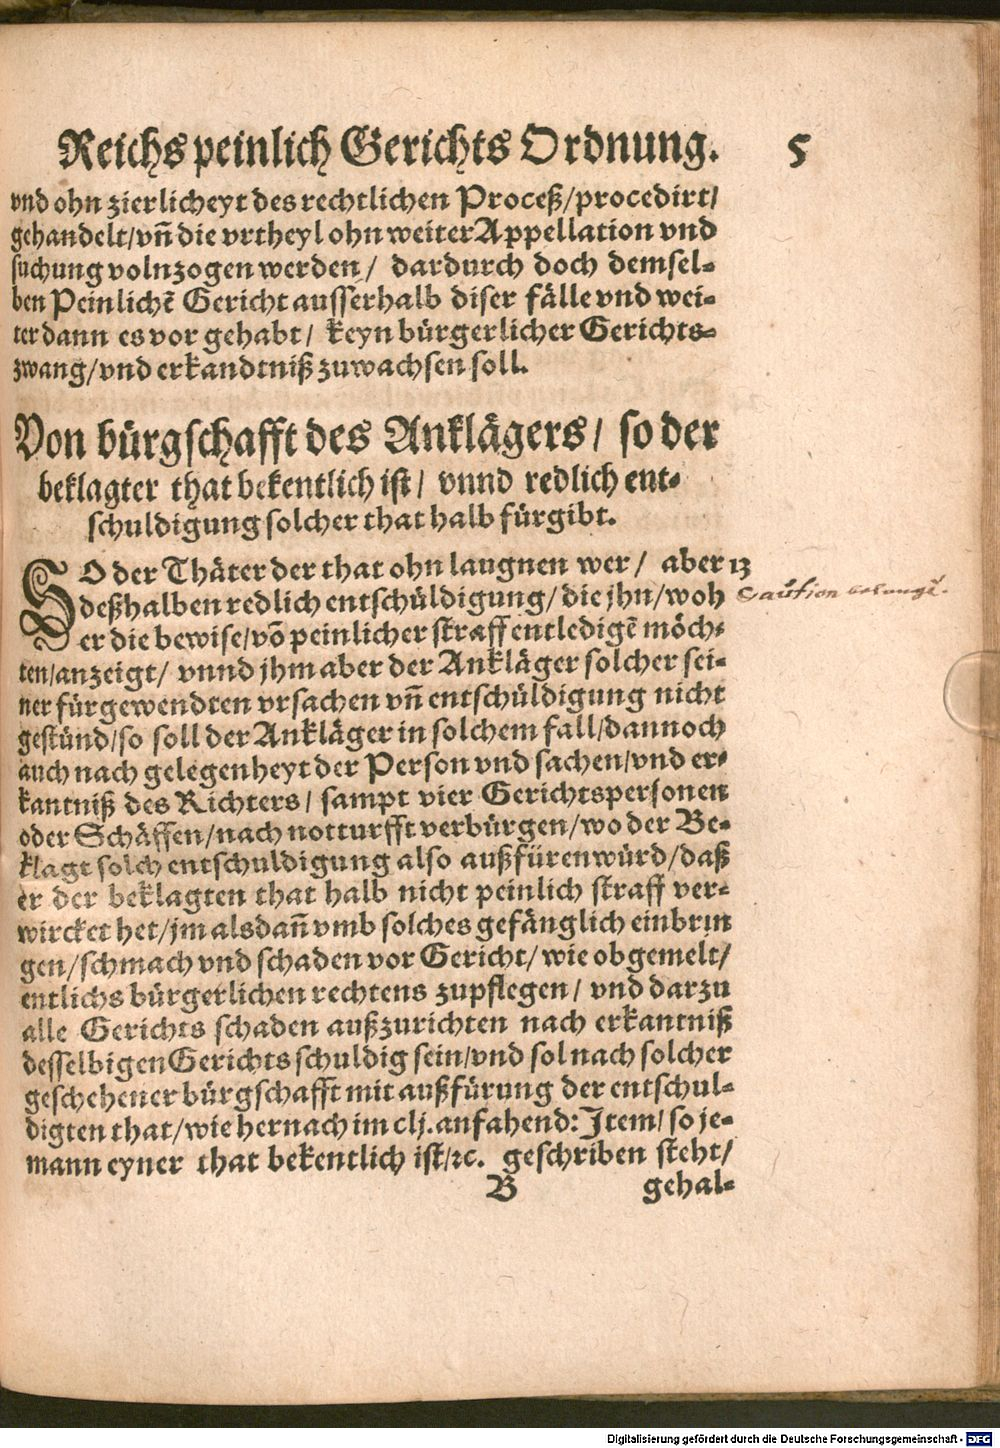 Reichs peinlich Gerichts Ordnung. 5
vnd ohn zierlicheyt des rechtlichen Proceß/procedirt/
gehandelt/vñ die vrtheyl ohn weiter Appellation vnd
suchung volnzogen werden/ dardurch doch demsel-
ben Peinlichẽ Gericht ausserhalb diser fälle vnd wei-
ter dann es vor gehabt/ keyn bürgerlicher Gerichts-
zwang/vnd erkandtniß zuwachsen soll.
Von bürgschafft des Anklägers/ so der
beklagter that bekentlich ist/ vnnd redlich ent-
schuldigung solcher that halb fürgibt.
SO der Thäter der that ohn laugnen wer/ aber 13
deßhalben redlich entschüldigung/die jhn/woh Caution
er die bewise/võ peinlicher straff entledigẽ möch-
ten/anzeigt/ vnnd jhm aber der Ankläger solcher sei-
ner fürgewendten vrsachen vñ entschüldigung nicht
gestünd/so soll der Ankläger in solchem fall/dannoch
auch nach gelegenheyt der Person vnd sachen/vnd er-
kantniß des Richters/ sampt vier Gerichtspersonen
oder Schäffen/nach notturfft verbürgen/wo der Be-
klagt solch entschuldigung also außfüren würd/daß
er der beklagten that halb nicht peinlich straff ver-
wircket het/jm alsdañ vmb solches gefänglich einbrin
gen/schmach vnd schaden vor Gericht/wie obgemelt/
entlichs bürgerlichen rechtens zupflegen/ vnd darzu
alle Gerichts schaden außzurichten nach erkantniß
desselbigen Gerichts schuldig sein/vnd sol nach solcher
geschehener bürgschafft mit außfürung der entschul-
digten that/wie hernach im clj. anfahend: Item/ so je-
mann eyner that bekentlich ist/ꝛc. geschriben steht/
B gehal-
Digitalisierung gefördert durch die Deutsche Forschungsgemeinschaft - DFG